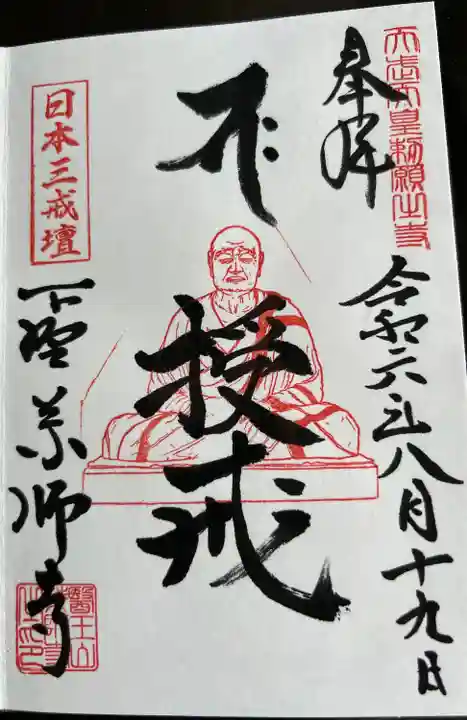 天武天皇勅願之寺
奉拝
令和六年八月十九日
授戒
日本三戒壇
下野薬師寺
醫王山